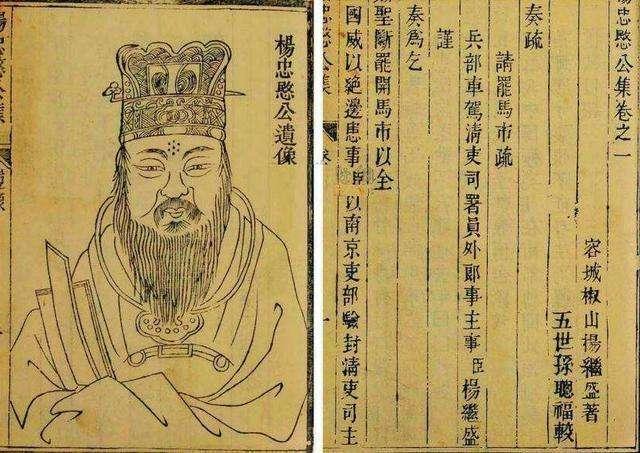 楊忠愍公遺像
楊忠愍公集卷之一
容城椒山揚繼盛著
五世孫聰福較
奏疏
請罷馬市疏
兵部車駕清吏司署員外郎事主事臣楊繼盛
謹
奏爲乞
聖斷罷開馬市以全
國威以絕邊患事臣以南京吏部驗封清吏司主